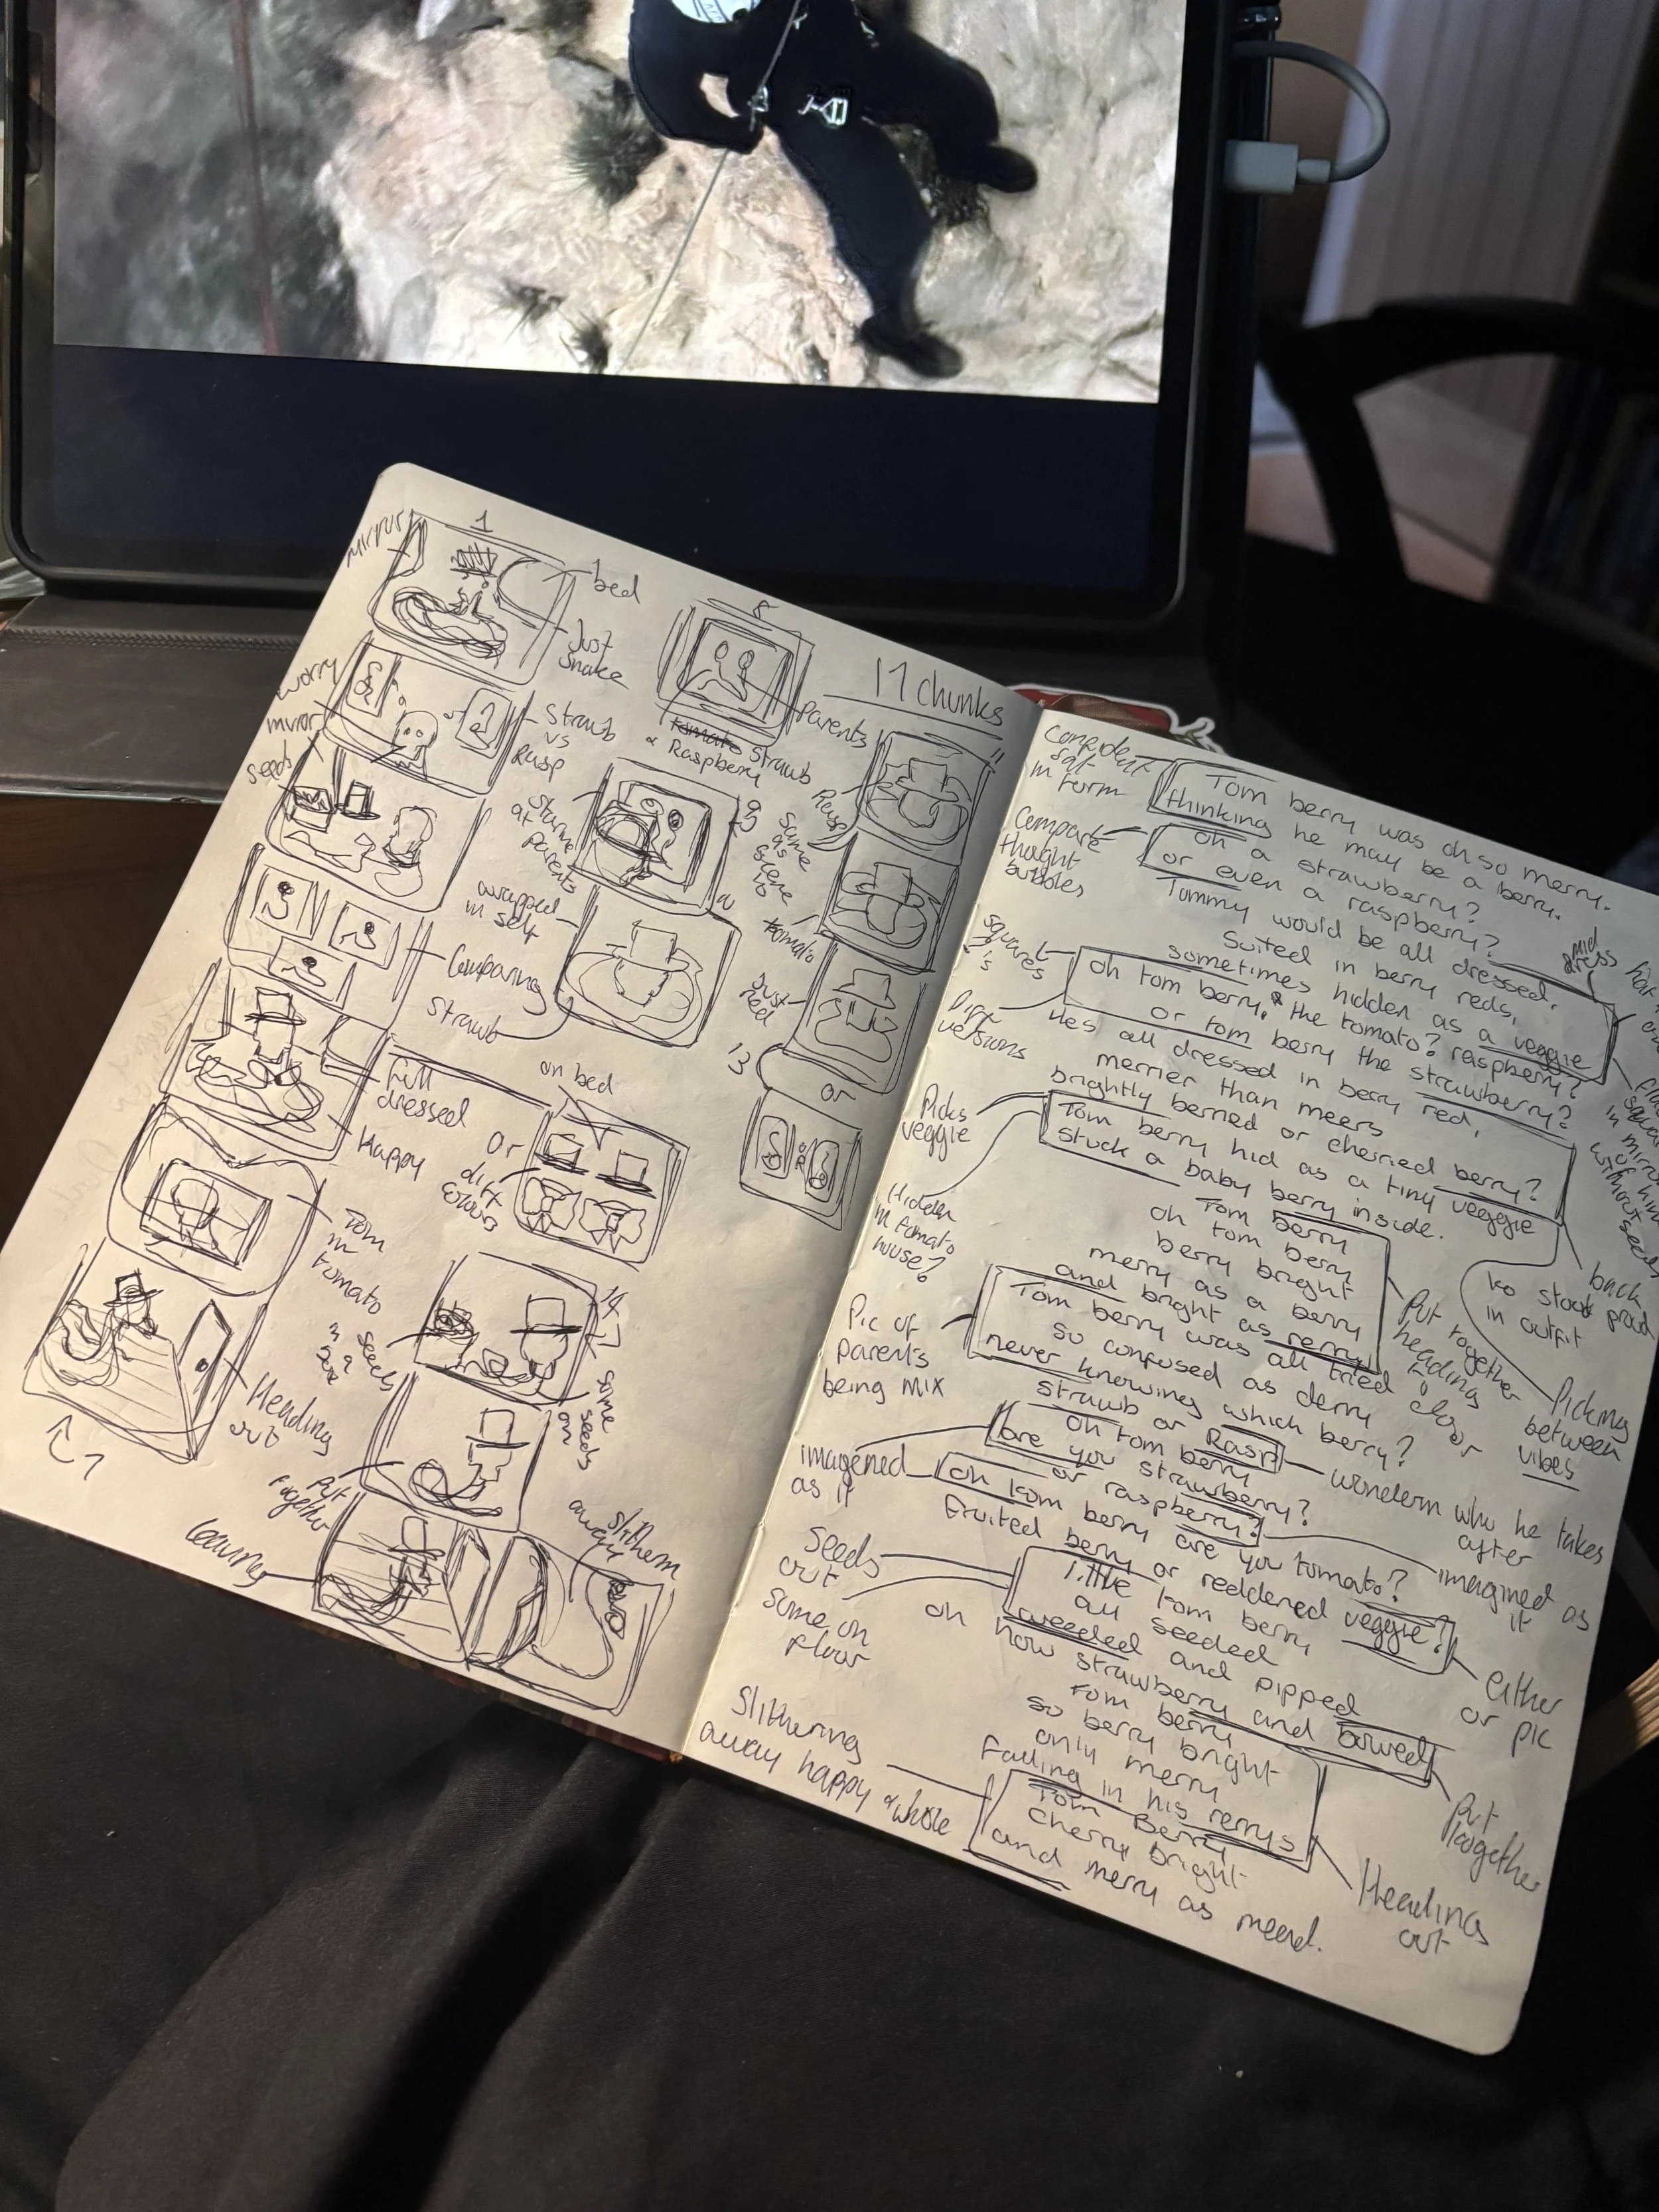 1
mirror
bed
Just
Snake
worry
mirror
Straub
vs
Rasp
seeds
Comparing
Full
dressed
Happy
Tom
in
tomato
Heading
out
7
8
Parents
Straub
& Raspberry
Staring
at
parents
9
wrapped
in self
Straub
on bed
Or
diff
colours
14
seeds
some
seeds
on
Put
together
Leaving
Slithering
away
17 chunks
11
Reuse
Same
as
scene
10
tomato
Just
red
13
or
Confident
Sat
in form
Compare
thought
bubbles
squares
Diff
versions
Picks
veggie
Hidden
in tomato
house?
Pic of
parents
being mix
imagened
as it
Seeds
out
Some on
floor
Slithering
away happy & whole
Tom berry was oh so merry.
thinking he may be a berry.
oh a strawberry?
or even a raspberry?
Tommy would be all dressed,
Suited in berry reds,
sometimes hidden as a veggie
oh tom berry, & the tomato? raspberry?
or tom berry the strawberry?
Hes all dressed in berry red,
merrier than meers
brightly berried or cherried berry?
Tom berry hid as a tiny veggie
stuck a baby berry inside.
Tom berry
oh tom berry
berry bright
merry as a berry
and bright as rerry
Tom berry was all tried
so confused as derry
never knowing which berry?
strawb or Rasp
oh tom berry
are you strawberry?
or raspberry?
oh tom berry are you tomato?
Fruited berry or reddened veggie?
little tom berry
all seeded
weeded and pipped
oh how strawberry and bowed
Tom berry
so berry bright
only merry
Falling in his rerrys
Tom Berry
Cherry bright
and merry as meerd.
mid
dress
back
to stood proud
in outfit
Put together
heading to
door
Picking
between
vibes
wonderin who he takes
after
imagined as
it
either
or pic
Put
together
Heading
out